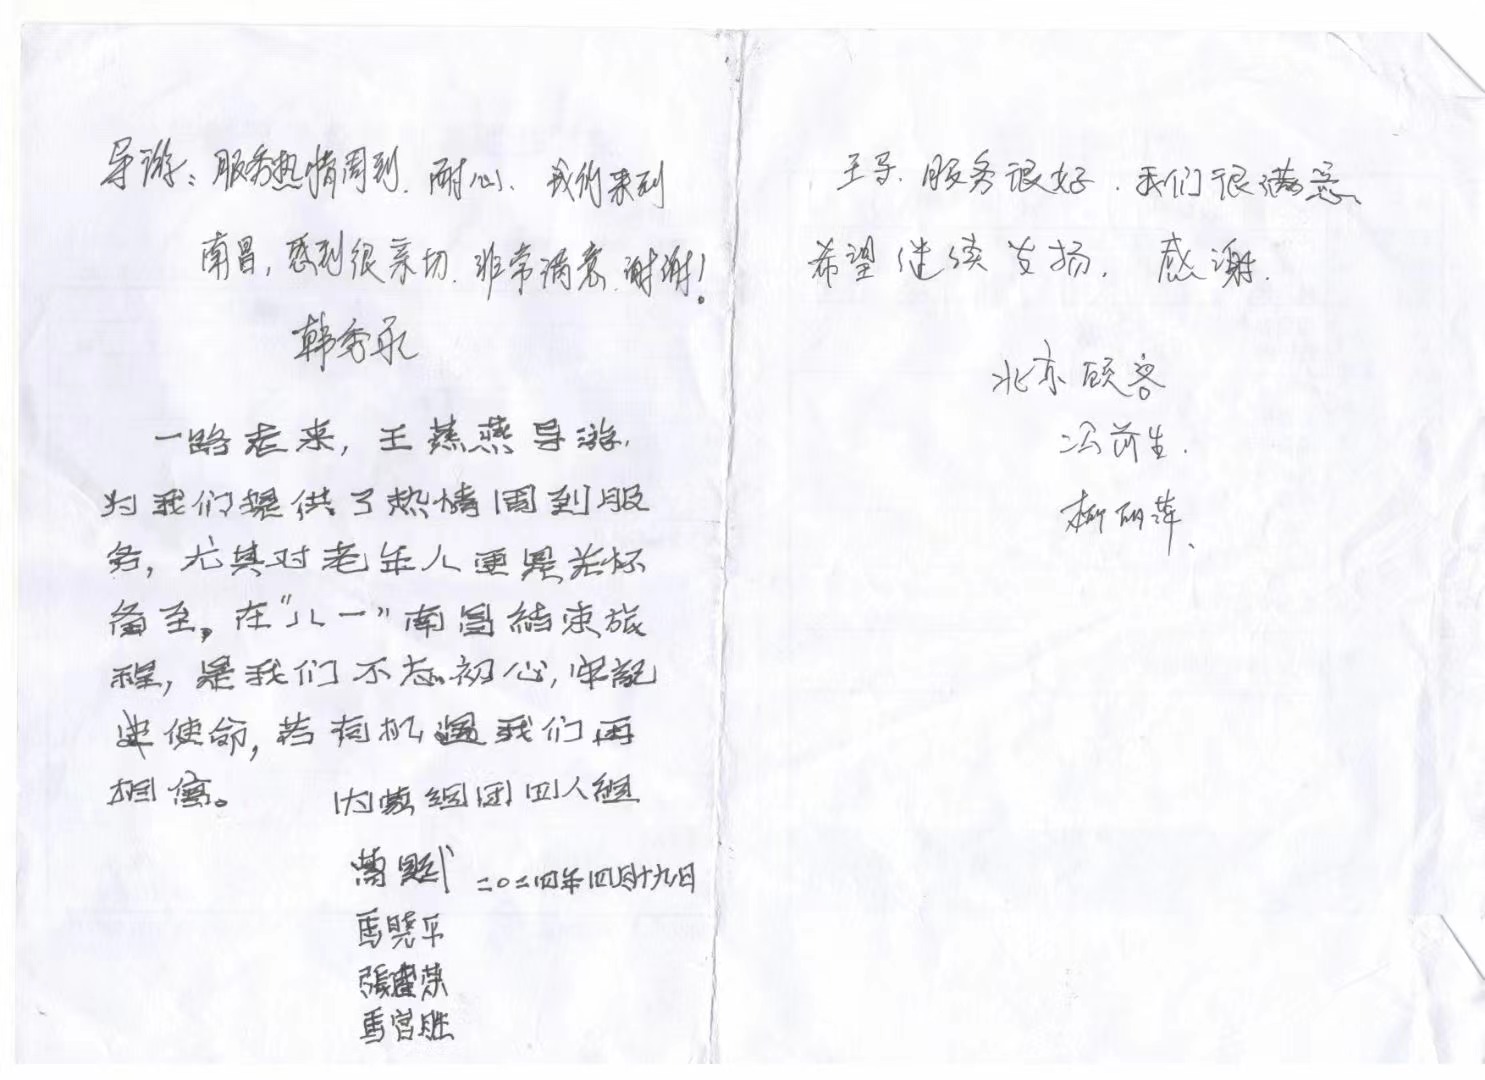 导游：服务热情周到、耐心、我们来到
南昌，感到很亲切、非常满意、谢谢！
韩秀永
一路走来，王燕燕导游，
为我们提供了热情周到服
务，尤其对老年人更是关怀
备至，在“八一”南昌结束旅
程，是我们不忘初心，牢记
使命，若有机遇我们再
相会。
内蒙组团四人组
二〇二四年四月十九日
馬晓平
張建荣
馬富胜
王导、服务很好、我们很满意、
希望继续发扬、感谢.
北京顾客
柳丽萍、